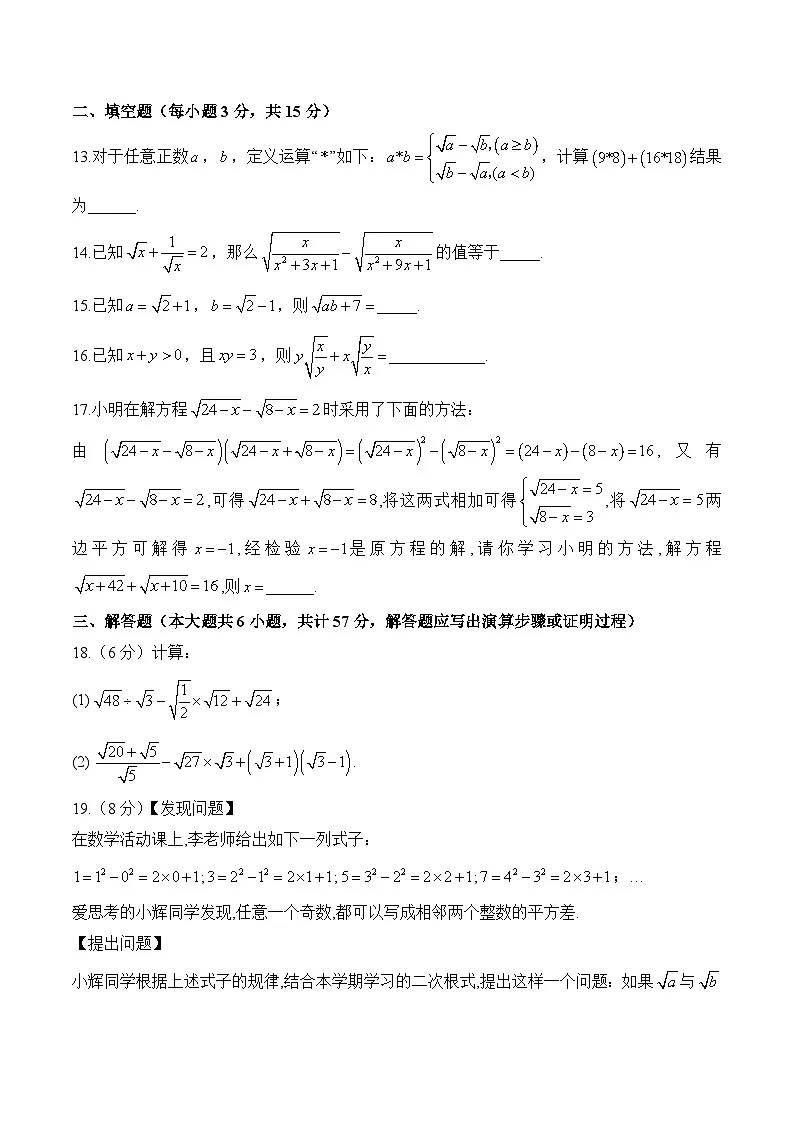 二、填空题（每小题 3 分，共 15 分）
13.对于任意正数 a ，b ，定义运算“ * ”如下：a*b = { √a − √b,(a ≥ b) √b − √a,(a < b) ，计算 (9*8) + (16*18) 结果
为______.
14.已知 √x + 1/√x = 2 ，那么 √(x/(x²+3x+1)) − √(x/(x²+9x+1)) 的值等于_____.
15.已知 a = √2 + 1 ，b = √2 − 1 ，则 √(ab+7) = _____.
16.已知 x + y > 0 ，且 xy = 3 ，则 y√(x/y) + x√(y/x) = ____________.
17.小明在解方程 √(24−x) − √(8−x) = 2 时采用了下面的方法：
由 (√(24−x) − √(8−x))(√(24−x) + √(8−x)) = (√(24−x))² − (√(8−x))² = (24−x) − (8−x) = 16 , 又有
√(24−x) − √(8−x) = 2 ,可得 √(24−x) + √(8−x) = 8 ,将这两式相加可得 { √(24−x) = 5 √(8−x) = 3 ,将 √(24−x) = 5 两
边平方可解得 x = −1 ,经检验 x = −1 是原方程的解 ,请你学习小明的方法 ,解方程
√(x+42) + √(x+10) = 16 ,则 x = ______.
三、解答题（本大题共 6 小题，共计 57 分，解答题应写出演算步骤或证明过程）
18.（6 分）计算：
(1) √48 ÷ √3 − √(1/2) × √12 + √24 ；
(2) (√20 + √5)/√5 − √27 × √3 + (√3 + 1)(√3 − 1) .
19.（8 分）【发现问题】
在数学活动课上,李老师给出如下一列式子：
1 = 1² − 0² = 2×0+1; 3 = 2² − 1² = 2×1+1; 5 = 3² − 2² = 2×2+1; 7 = 4² − 3² = 2×3+1 ；…
爱思考的小辉同学发现,任意一个奇数,都可以写成相邻两个整数的平方差.
【提出问题】
小辉同学根据上述式子的规律,结合本学期学习的二次根式,提出这样一个问题：如果 √a 与 √b